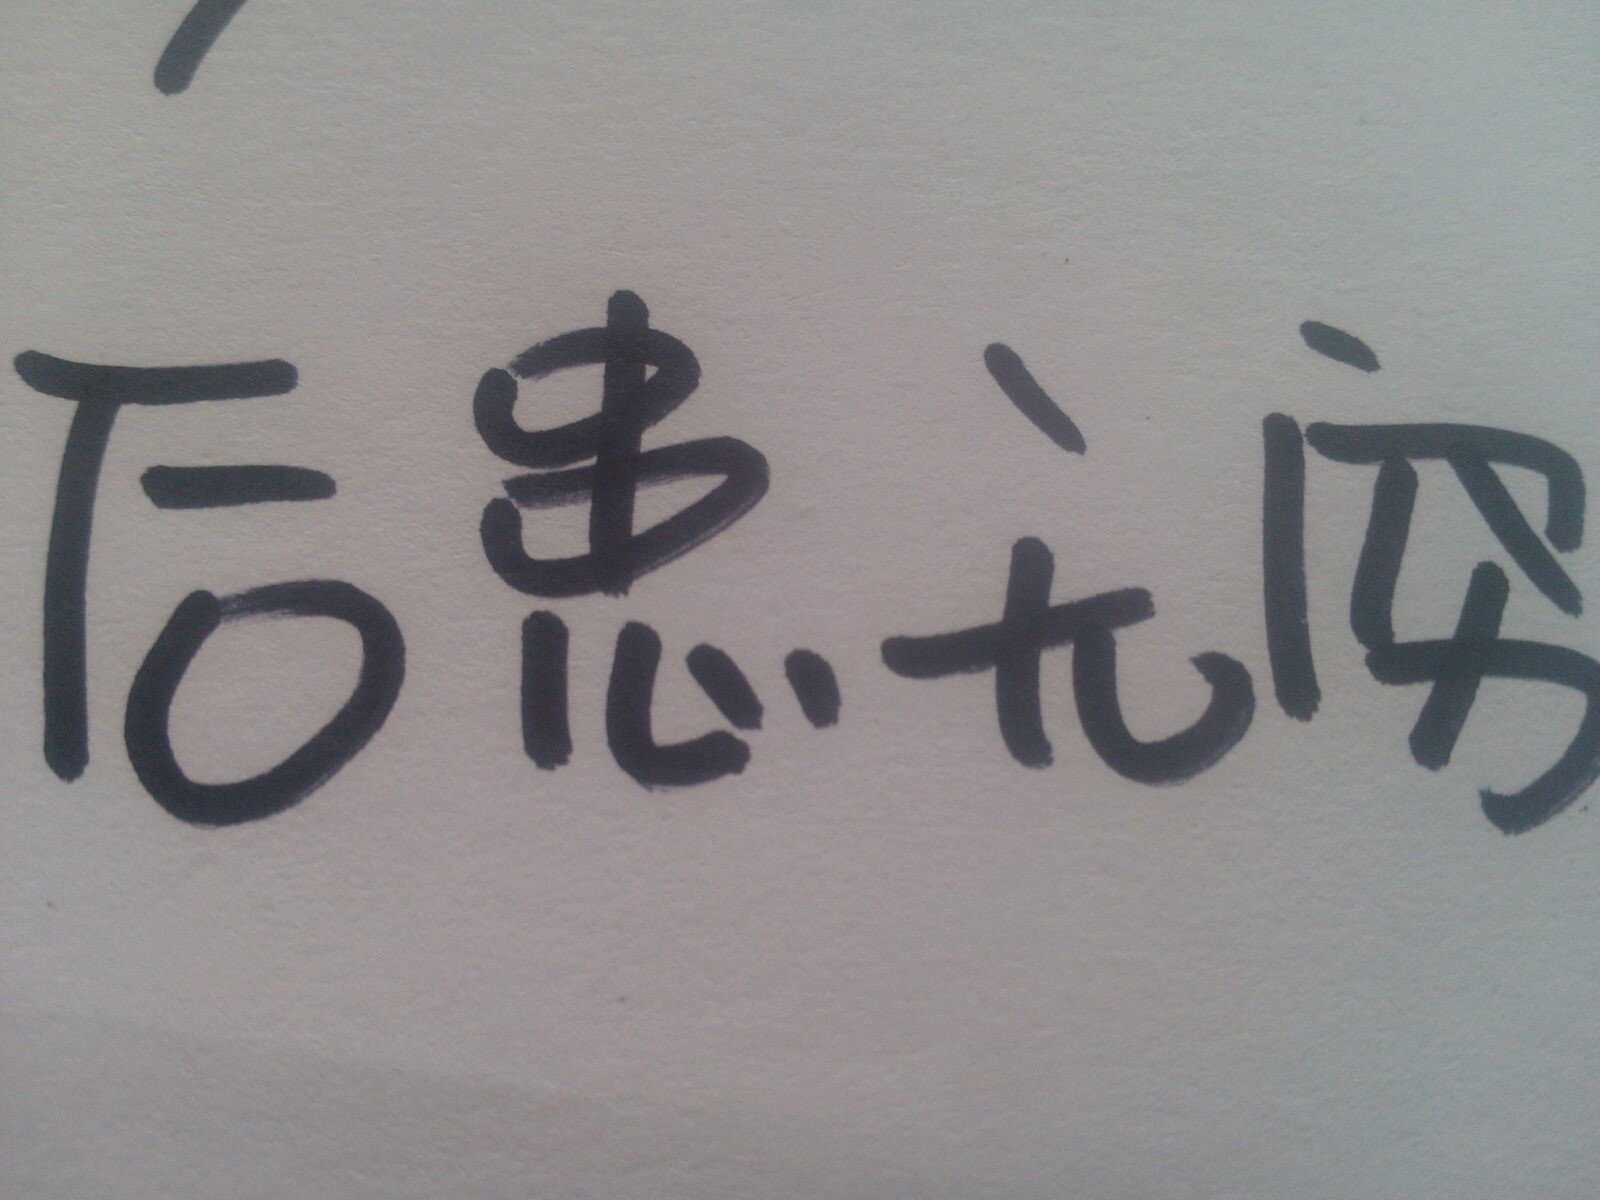 后患无穷